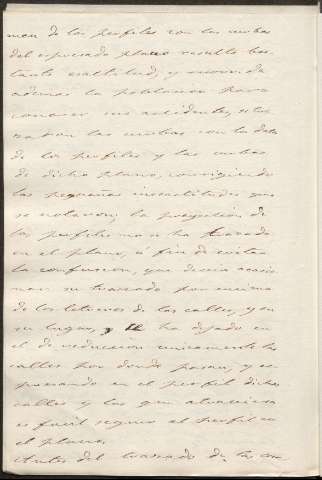 men de los perfiles con las curbas
del espresado plano resulto bas-
tante exactitud, y recorrida
ademas la poblacion para
conocer sus accidentes, se tra
zaron las curbas con los datos
de los perfiles y las curbas
de dicho plano, corrigiendo
las pequeñas inexactitudes que
se notaron; la proyeccion de
los perfiles no se ha trazado
en el plano, á fin de evitar
la confusion, que devia ocasio
nar su trazado por encima
de los letreros de las calles, y en
su lugar, se ha dejado en
el de reduccion unicamente las
calles por donde pasan, y es-
presando en el perfil dichas
calles y las que atraviesa
es facil seguir el perfil en
el plano.
Antes del trazado de las